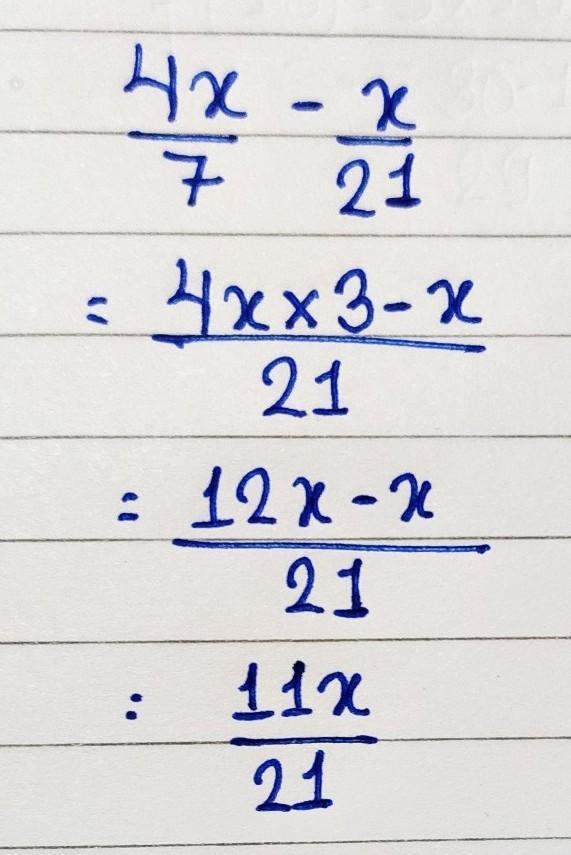 4x/7 - x/21
= 4x×3-x/21
= 12x-x/21
: 11x/21